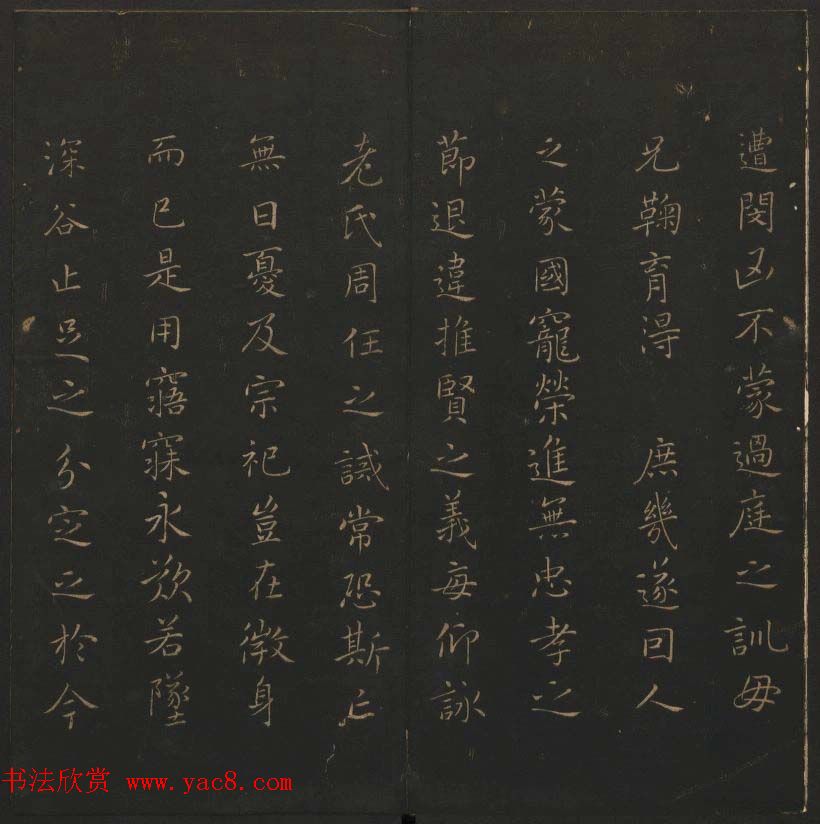 遭閔凶不蒙過庭之訓毋
兄鞠育得 庶幾遂因人
之蒙國寵榮進無忠孝之
節退違推賢之義每仰詠
老氏周任之誡常恐斯亡
無日憂及宗祀豈在微身
而已是用寤寐永歎若墜
深谷止足之分定之於今
书法欣赏 www.yac8.com